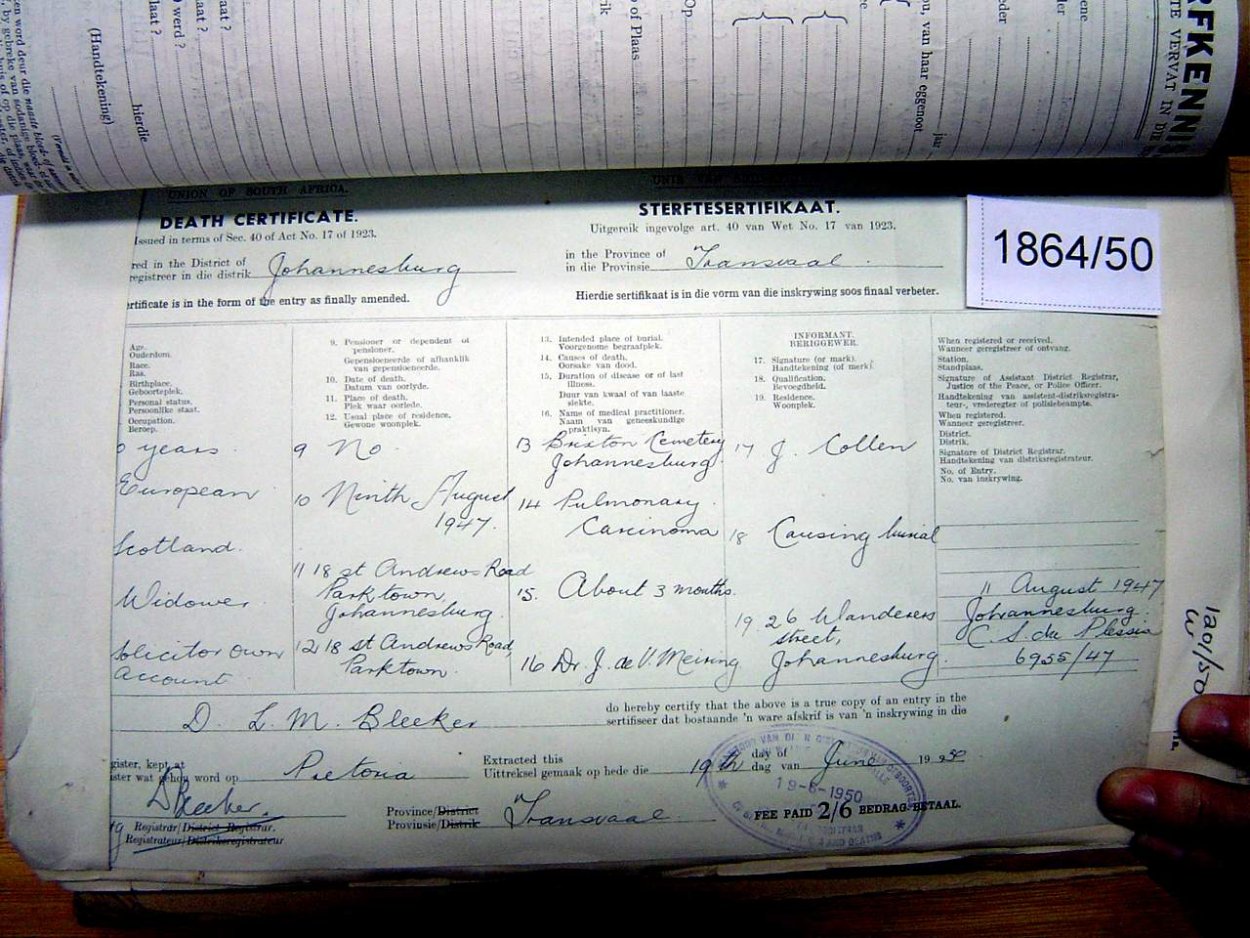 RFKENNI
TE VERVAT IN DIE
ene
der
eder
jaar
ou, van haar eggenoot
Op
o of Plaas
rik
aat ?
) werd ?
laat ?
hierdie
(Handtekening)
UNION OF SOUTH AFRICA.
DEATH CERTIFICATE.
STERFTESERTIFIKAAT.
Issued in terms of Sec. 40 of Act No. 17 of 1923.
Uitgereik ingevolge art. 40 van Wet No. 17 van 1923.
1864/50
red in the District of
registreer in die distrik Johannesburg
in the Province of
in die Provinsie Transvaal.
ertificate is in the form of the entry as finally amended.
Hierdie sertifikaat is in die vorm van die inskrywing soos finaal verbeter.
Age.
Ouderdom.
Race.
Ras.
Birthplace.
Geboorteplek.
Personal status.
Persoonlike staat.
Occupation.
Beroep.
9. Pensioner or dependent of
pensioner.
Gepensioeneerde of afhanklik
van gepensioeneerde.
10. Date of death.
Datum van oorlyde.
11. Place of death.
Plek waar oorlede.
12. Usual place of residence.
Gewone woonplek.
13. Intended place of burial.
Voorgenome begraafplek.
14. Causes of death.
Oorsake van dood.
15. Duration of disease or of last
illness.
Duur van kwaal of van laaste
siekte.
16. Name of medical practitioner.
Naam van geneeskundige
praktisyn.
INFORMANT.
BERIGGEWER.
17. Signature (or mark).
Handtekening (of merk).
18. Qualification.
Bevoegdheid.
19. Residence.
Woonplek.
When registered or received.
Wanneer geregistreer of ontvang.
Station.
Standplaas.
Signature of Assistant District Registrar,
Justice of the Peace, or Police Officer.
Handtekening van assistent-distriksregistra-
teur-, vrederegter of polisiebeampte.
When registered.
Wanneer geregistreer.
District.
Distrik.
Signature of District Registrar.
Handtekening van distriksregistrateur.
No. of Entry.
No. van inskrywing.
years
European
Scotland.
Widower
Solicitor own
account.
9 No.
10 Ninth August
1947.
11 18 St Andrews Road
Parktown,
Johannesburg.
12 18 St Andrews Road,
Parktown.
13 Brixton Cemetery
Johannesburg.
14 Pulmonary
Carcinoma
15. About 3 months.
16 Dr. J. de V. Meiring
17 J. Collen
18 Causing burial
19. 26 Wanderers
street,
Johannesburg.
11 August 1947
Johannesburg.
C. S. du Plessis
6955/47
1201/50
D. L. M. Bleeker
do hereby certify that the above is a true copy of an entry in the
sertifiseer dat bostaande 'n ware afskrif is van 'n inskrywing in die
gister, kept at
ster wat gehou word op Pretoria
Extracted this
Uittreksel gemaak op hede die 19th
day of
dag van June 1950
DBleeker.
Registrar/District Registrar.
Registrateur/Distriksregistrateur
Province/District
Provinsie/Distrik Transvaal
19-6-1950
FEE PAID 2/6 BEDRAG BETAAL.